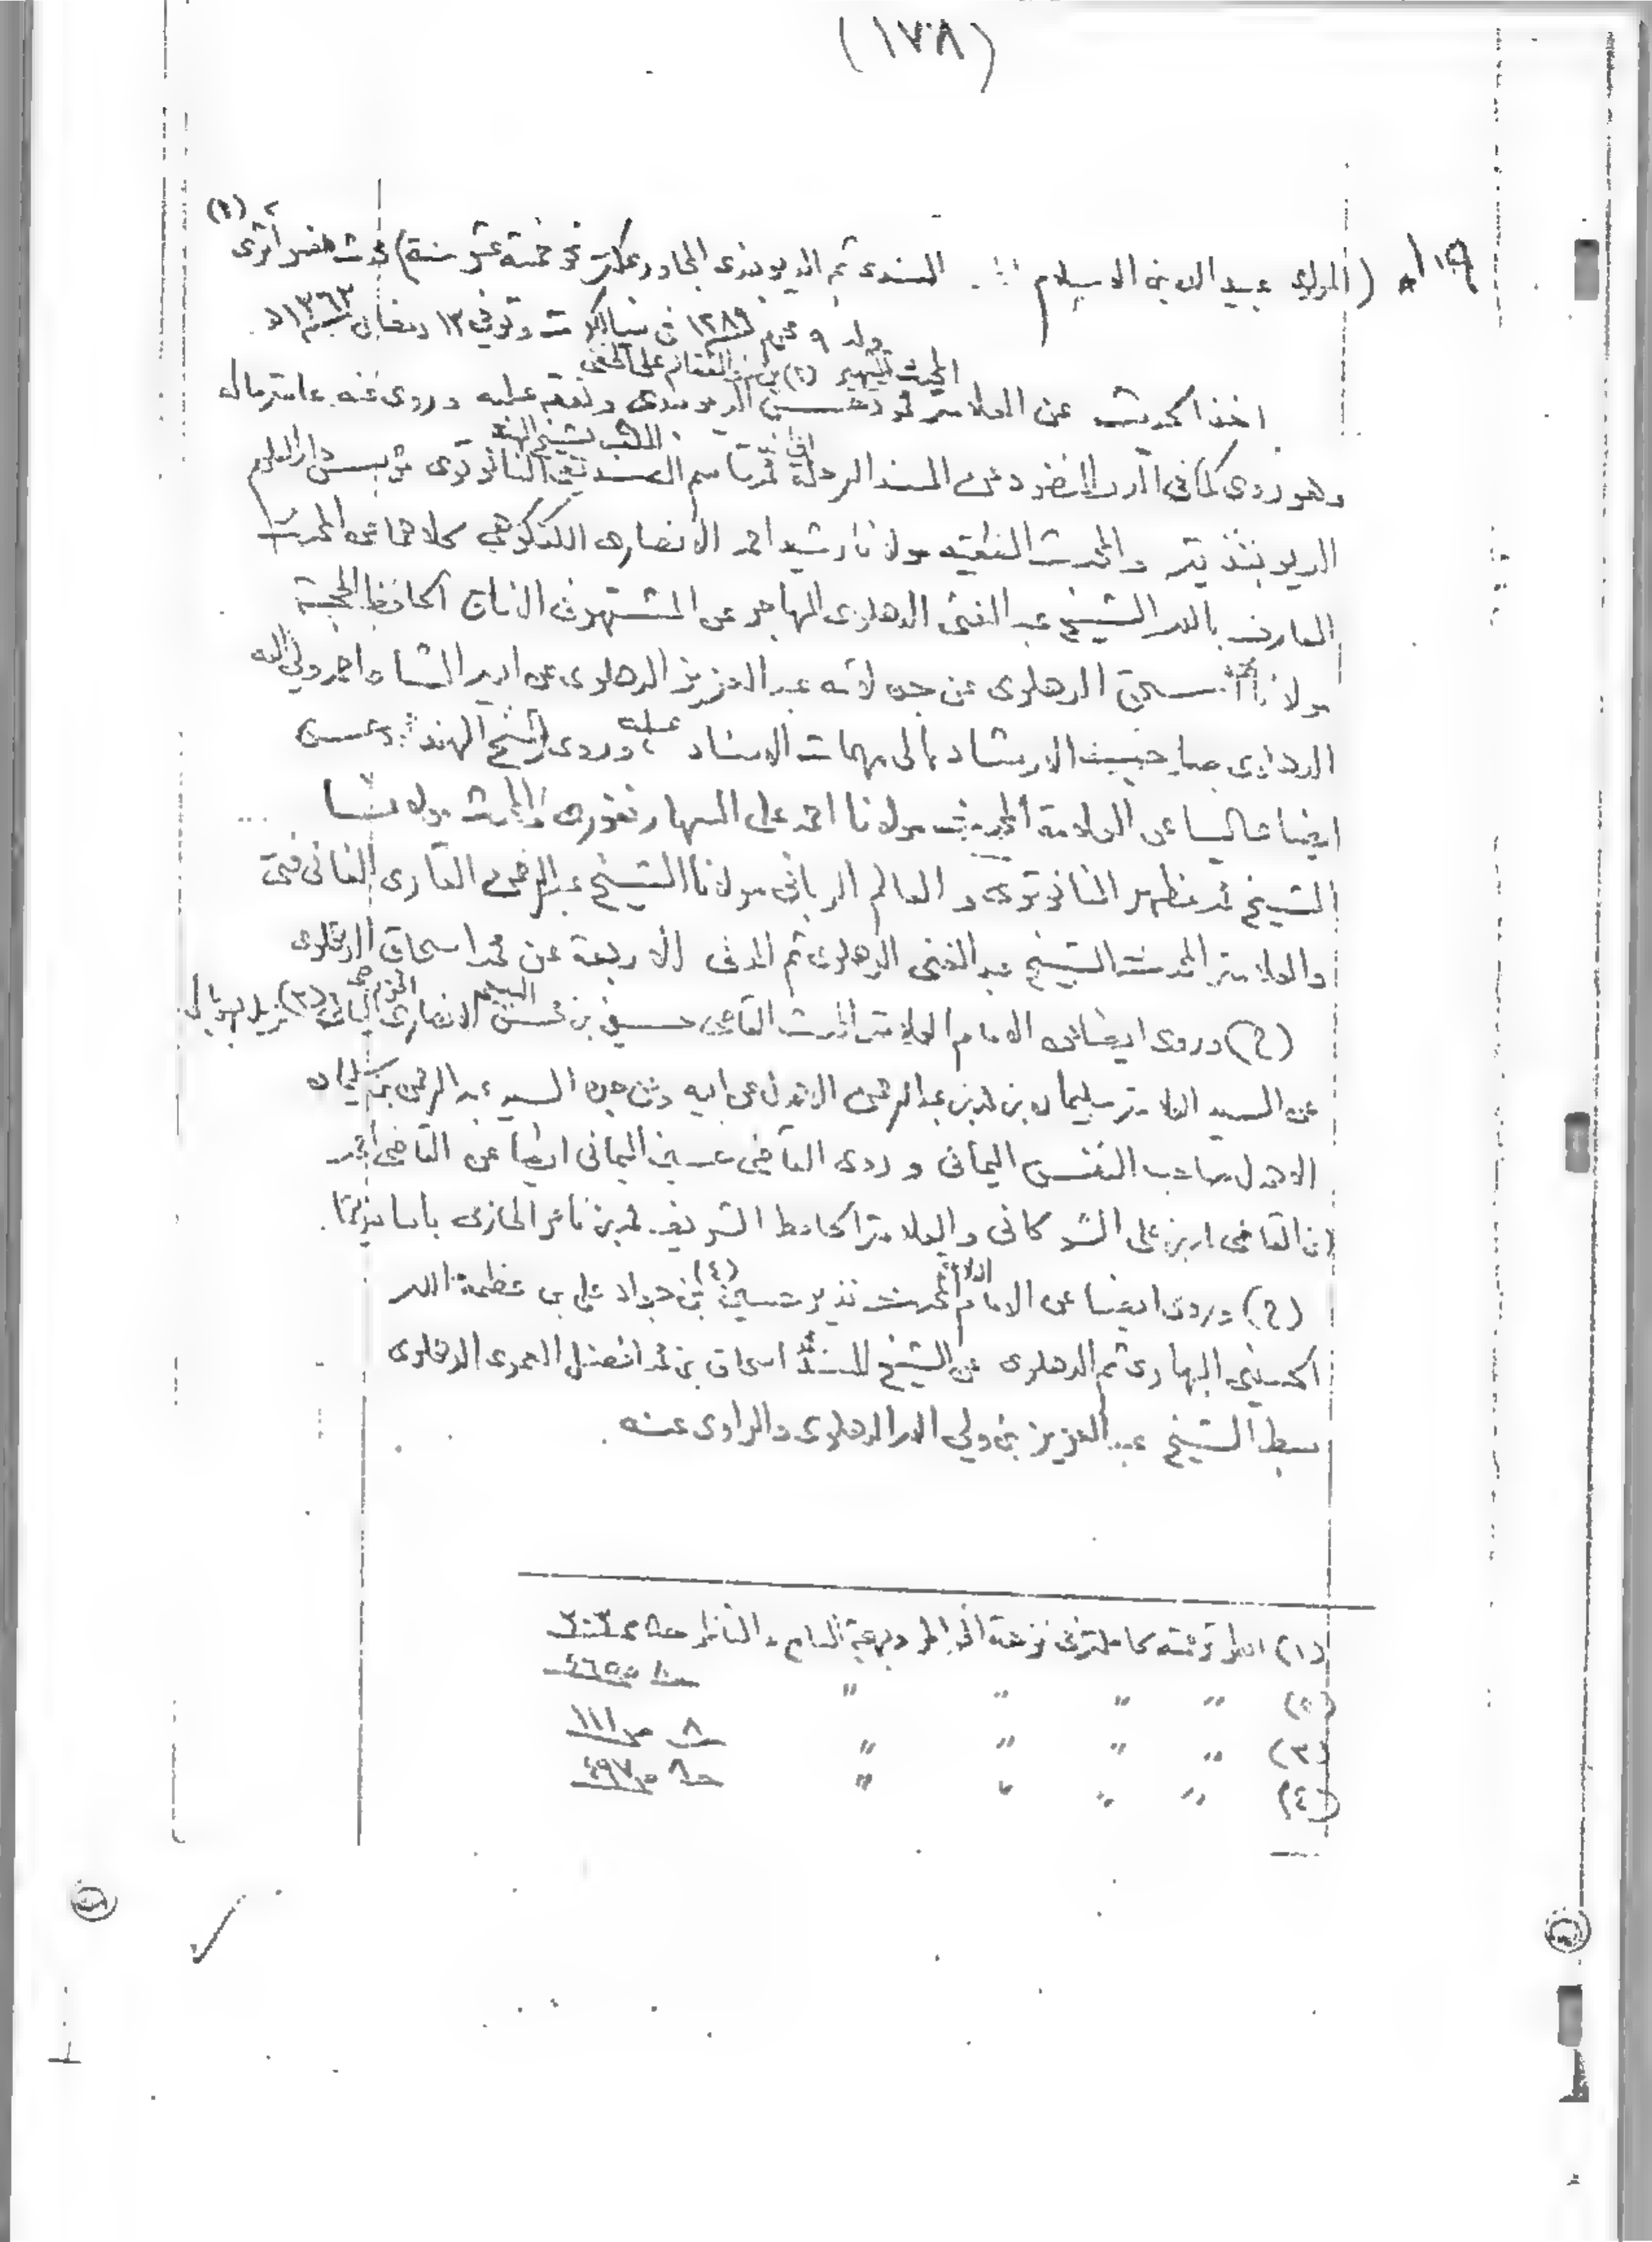 (١٧٨)
١١٩ (المولوي عبيد الله بن الاسلام السندى ثم الديوبندى المجاور بمكة نحو خمسة عشر سنة) محدث مفسر أثرى (١)
ولد ٩ محرم ١٢٨٩ فى سيالكوت وتوفي ١٢ رمضان ١٣٦٣ه
المحدث الشهير (٢) بن ذو الفقار على الحنفى
اخذ الحديث عن العلامة محمود حسن الديوبندى وتفقه عليه وروى عنه عامة ماله
الملقب بشيخ الهند
وهو روى كما فى الدر المنضود عن المسند الرحلة محمد قاسم الصديقي النانوتوى مؤسس دار العلوم
الديوبندية والمحدث الفقيه مولانا رشيد احمد الأنصارى الكنكوهي كلاهما عن المحدث
العارف بالله الشيخ عبد الغنى الدهلوى المهاجر عن المشتهر فى الآفاق الحافظ الحجة
مولانا محمد اسحق الدهلوى عن جده لأمه عبد العزيز الدهلوى عن ابيه الشاه احمد ولي الله
الدهلوى صاحب الارشاد الى مهمات الاسناد وروى شيخ الهند محمود حسن
ايضا عاليا عن العلامة المحدث مولانا احمد على السهارنفورى والمحدث مولانا
الشيخ محمد مظهر النانوتوى و العالم الربانى مولانا الشيخ عبد الرحمن القارى الفانى فتى
والعلامة المحدث الشيخ عبد الغنى الدهلوى ثم المدنى الأربعة عن محمد اسحاق الدهلوى
(ح) وروى ايضا عن الامام العلامة المحدث القاضى حسين بن محسن السبعى الانصارى الخزرجى اليمانى (٣) نزيل بهوبال
عن السيد العلامة سليمان بن محمد بن عبد الرحمن الاهدل عن ابيه وعن جده السيد عبد الرحمن بن سليمان
الاهدل صاحب النفس اليمانى و روى القاضى حسين اليمانى ايضا عن القاضى احمد
بن القاضى محمد بن على الشوكانى والعلامة الحافظ الشريف محمد بن ناصر الحازمى باسانيدهما
(ح) وروى ايضا عن الامام العلامة المحدث نذير حسين (٤) بن جواد على بن عظمة الله
الحسينى البهارى ثم الدهلوى عن الشيخ المسند محمد اسحاق بن محمد افضل العمرى الدهلوى
سبط الشيخ عبد العزيز بن ولي الله الدهلوى والراوى عنه
(١) انظر ترجمته كاملة فى نزهة الخواطر وبهجة المسامع والنواظر ح٨ ص٣٠٣
(٢) " " " " ح٨ ص٤٦٥
(٣) " " " " ٨ ص١١١
(٤) " " " " ح٨ ص٤٩٧